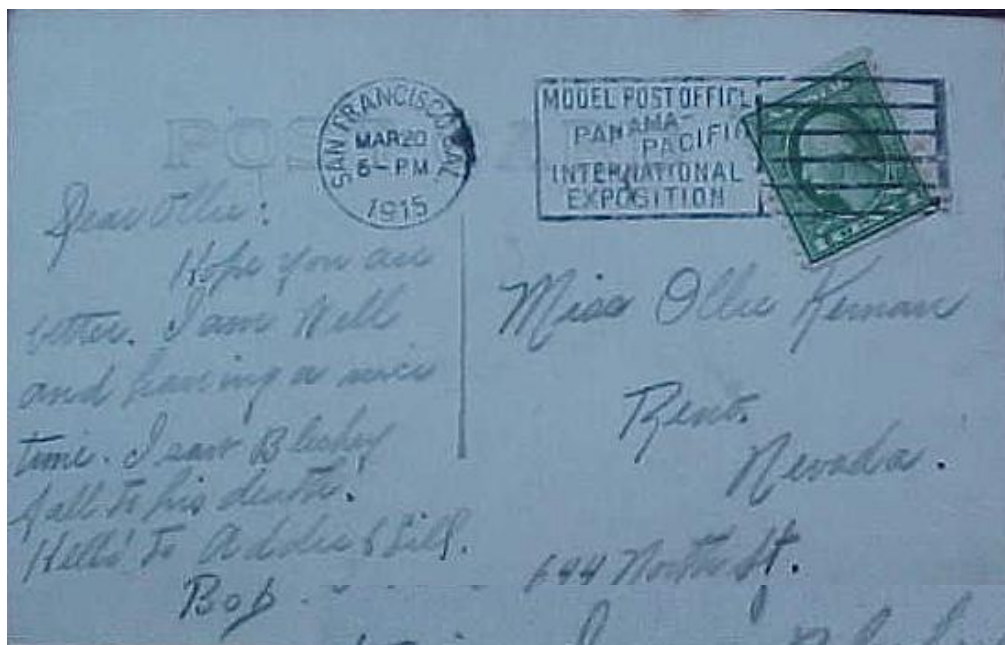 POST
SAN FRANCISCO, CAL.
MAR 20
6-PM
1915
MODEL POST OFFICE
PANAMA-
PACIFIC
INTERNATIONAL
EXPOSITION
Dear Ollie:
Hope you are
better. I am Well
and having a nice
time. I saw Blechey
fall to his death.
Hello to Addie & Bill.
Bob.
Miss Ollie Kernan
Reno.
Nevada.
644 North St.